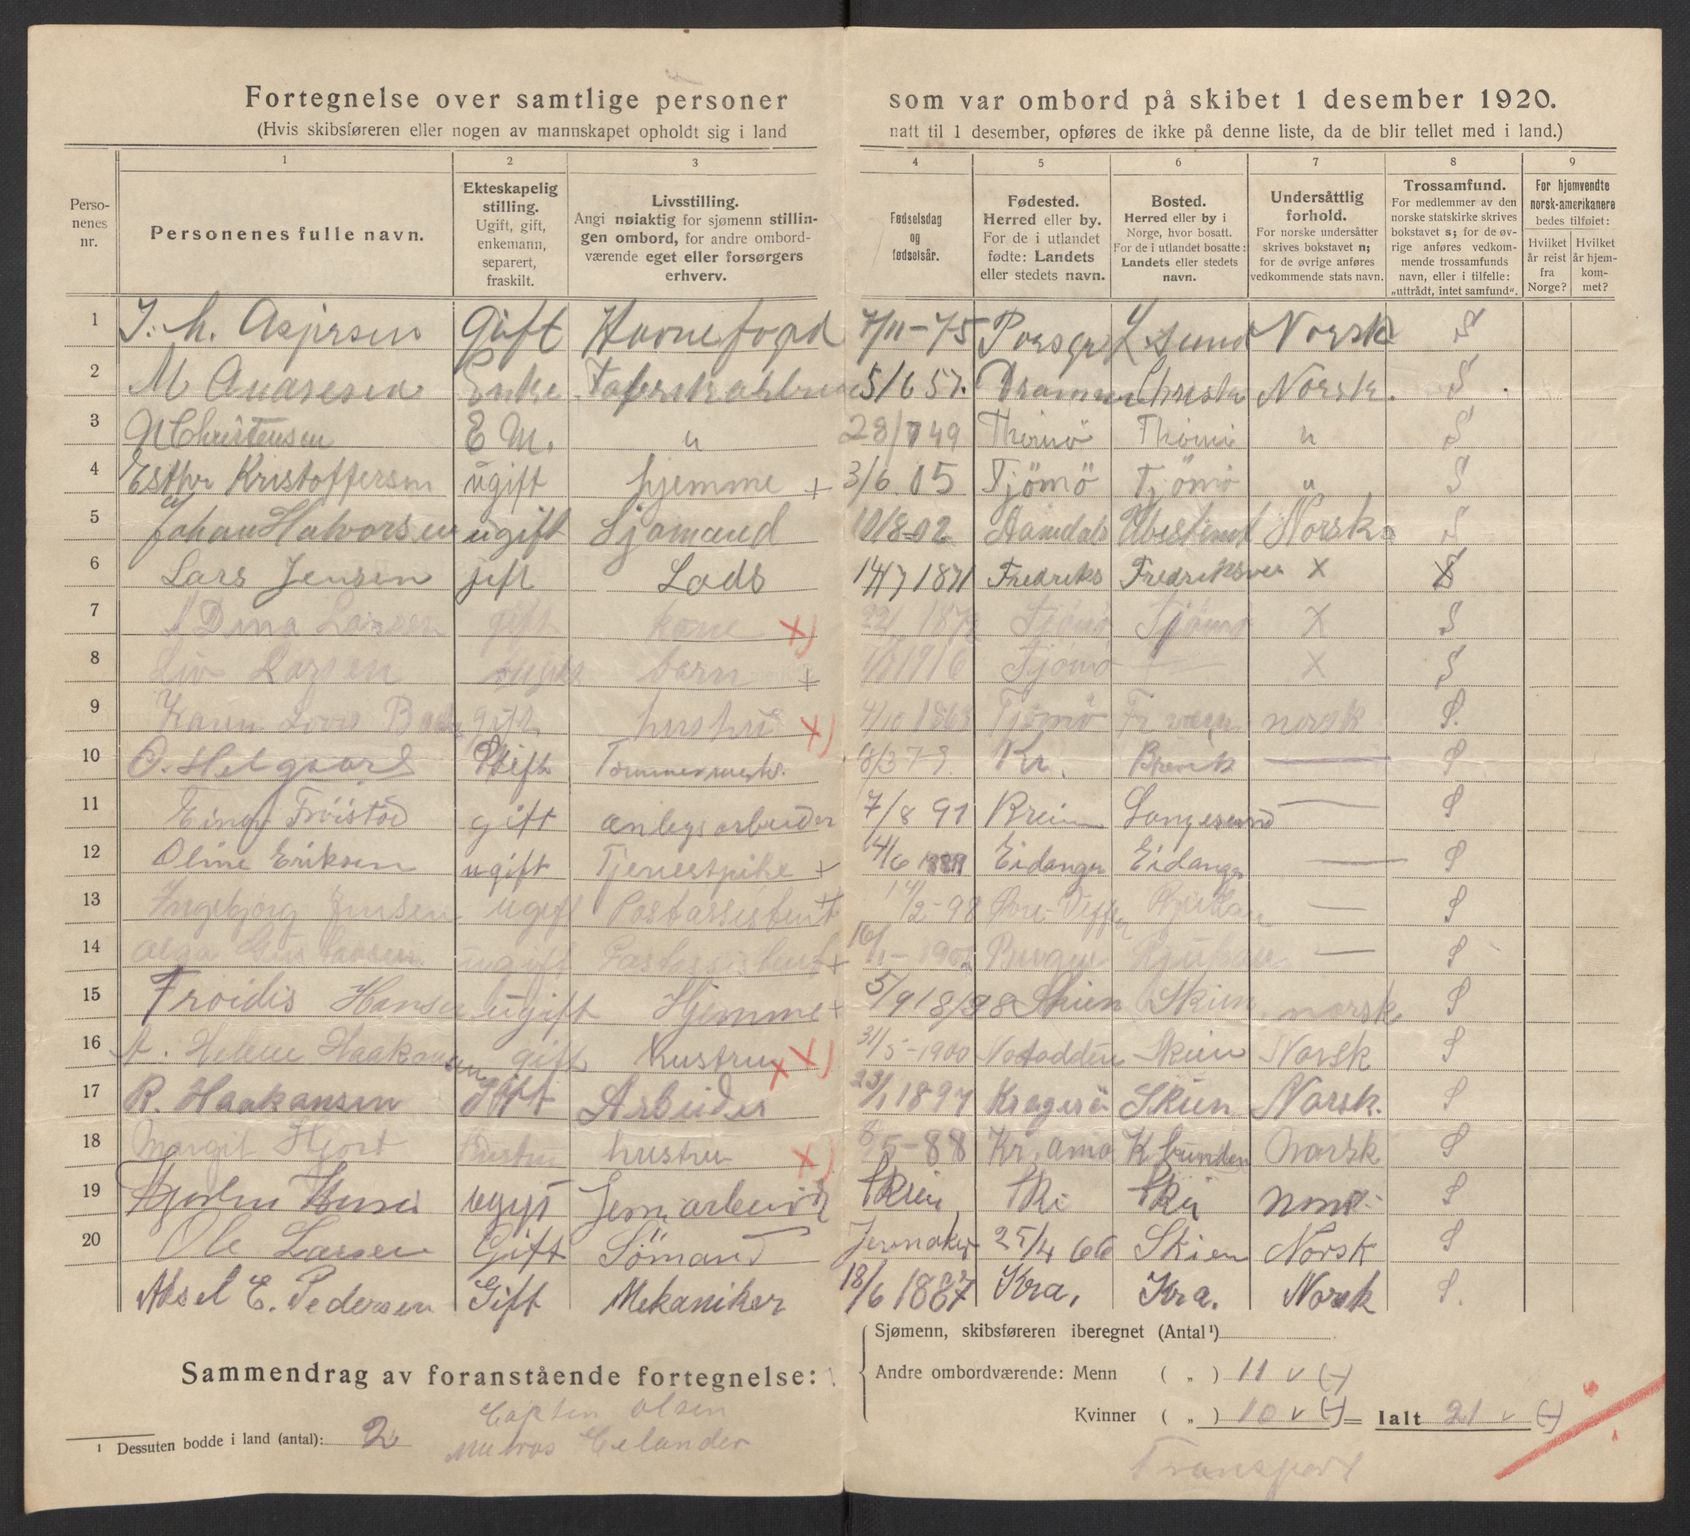 Fortegnelse over samtlige personer som var ombord på skibet 1 desember 1920.
(Hvis skibsføreren eller nogen av mannskapet opholdt sig i land natt til 1 desember, opføres de ikke på denne liste, da de blir tellet med i land.)
1 2 3 4 5 6 7 8 9
Personenes nr.
Personenes fulle navn.
Ekteskapelig stilling. Ugift, gift, enkemann, separert, fraskilt.
Livsstilling. Angi nøiaktig for sjømenn stillingen ombord, for andre ombordværende eget eller forsørgers erhverv.
Fødselsdag og fødselsår.
Fødested. Herred eller by. For de i utlandet fødte: Landets eller stedets navn.
Bosted. Herred eller by i Norge, hvor bosatt. For de i utlandet bosatte: Landets eller stedets navn.
Undersåttlig forhold. For norske undersåtter skrives bokstavet n; for de øvrige anføres vedkommende stats navn.
Trossamfund. For medlemmer av den norske statskirke skrives bokstavet s; for de øvrige anføres vedkommende trossamfunds navn, eller i tilfelle: „uttrådt, intet samfund".
For hjemvendte norsk-amerikanere bedes tilføiet: Hvilket år reist fra Norge? Hvilket år hjemkommet?
1 Gift Havnefogd 7/11-75 Porsgr L.sund Norsk S
2 M Enke 5/6 57. Norsk. S
3 Christensen E M. " 28/7 49 " S
4 Esther Kristoffersen ugift hjemme + 3/6 05 Tjömö Tjömö " S
5 Johan Halvorsen ugift Sjömand 10/8-02 Norsk S
6 Lars Jensen gift Lods 14/7 1871 Fredriks Fredriksvern X S
7 Dina Larsen gift kone X) 1872 Tjömö Tjömö X S
8 Liv Larsen barn + 1916 Tjömö X S
9 Karen gift hustru X) 4/10 1868 Tjömö norsk S.
10 O. Helgaard Gift 8/3 79 Kr. Brevik — S
11 Einar gift anlegsarbeider 7/8 91 Langesund — S
12 Oline Eriksen ugift Tjenestpike + 14/6 Eidanger Eidanger — S
13 Ingebjorg Jensen ugift Postassistent 14/2-98 Rjukan — S
14 Olga Gustavsen ugift + 16/1-1902 Rjukan — S
15 Froidis Hansen ugift Hjemme + 5/9 1898 Skien Skien norsk S
16 A. Helene Haakonsen gift hustru X X) 31/5-1900 Notodden Skien Norsk S
17 R. Haakansen gift Arbeider 23/1 1897 Kragerö Skien Norsk. S
18 Margit Hjort hustru X) 8/5-88 Norsk S
19 Jernarbeid Skien S
20 Ole Larsen Gift Sömand Jevnaker 25/4 66 Skien Norsk S
Aksel E. Pedersen Gift Mekaniker 18/6 1887 Kra. Kra. Norsk S.
Sammendrag av foranstående fortegnelse:
Sjømenn, skibsføreren iberegnet (Antal¹)
Andre ombordværende: Menn ( „ ) 11 v (-)
Kvinner ( „ ) 10 v (-) = Ialt 21 v (-)
¹ Dessuten bodde i land (antal): 2
Captin Olsen
Matros Celander
Transport